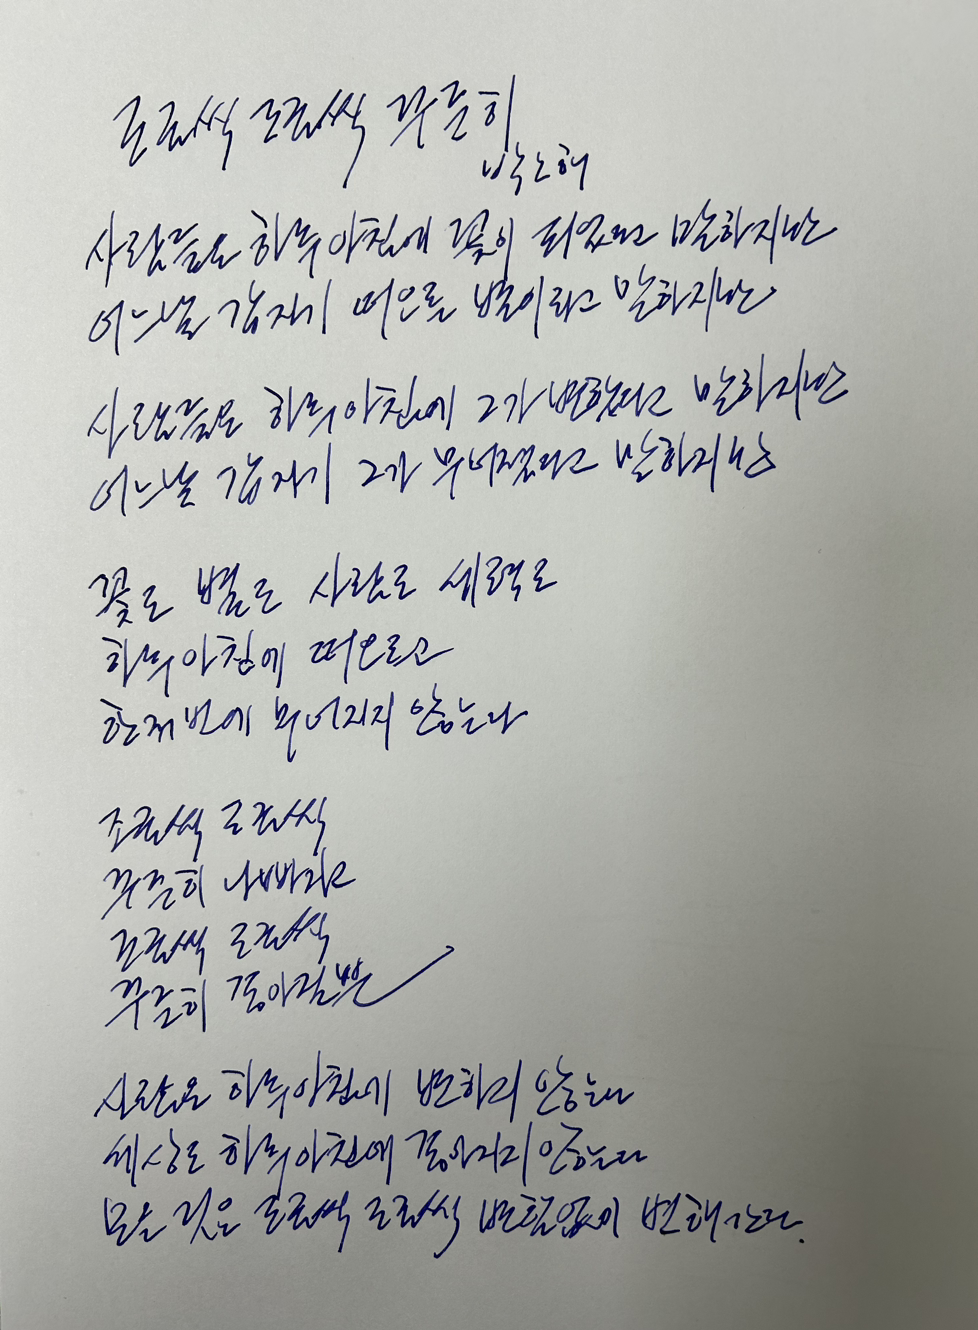 조금씩 조금씩 꾸준히
박노해
사람들은 하루아침에 꽃이 피었다고 말하지만
어느날 갑자기 떠오른 별이라고 말하지만
사람들은 하루아침에 그가 변했다고 말하지만
어느날 갑자기 그가 무너졌다고 말하지만
꽃도 별도 사람도 세력도
하루아침에 떠오르고
한꺼번에 무너지지 않는다
조금씩 조금씩
꾸준히 나빠지고
조금씩 조금씩
꾸준히 좋아질뿐
사람은 하루아침에 변하지 않는다
세상도 하루아침에 좋아지지 않는다
모든 것은 조금씩 조금씩 변함없이 변해간다.